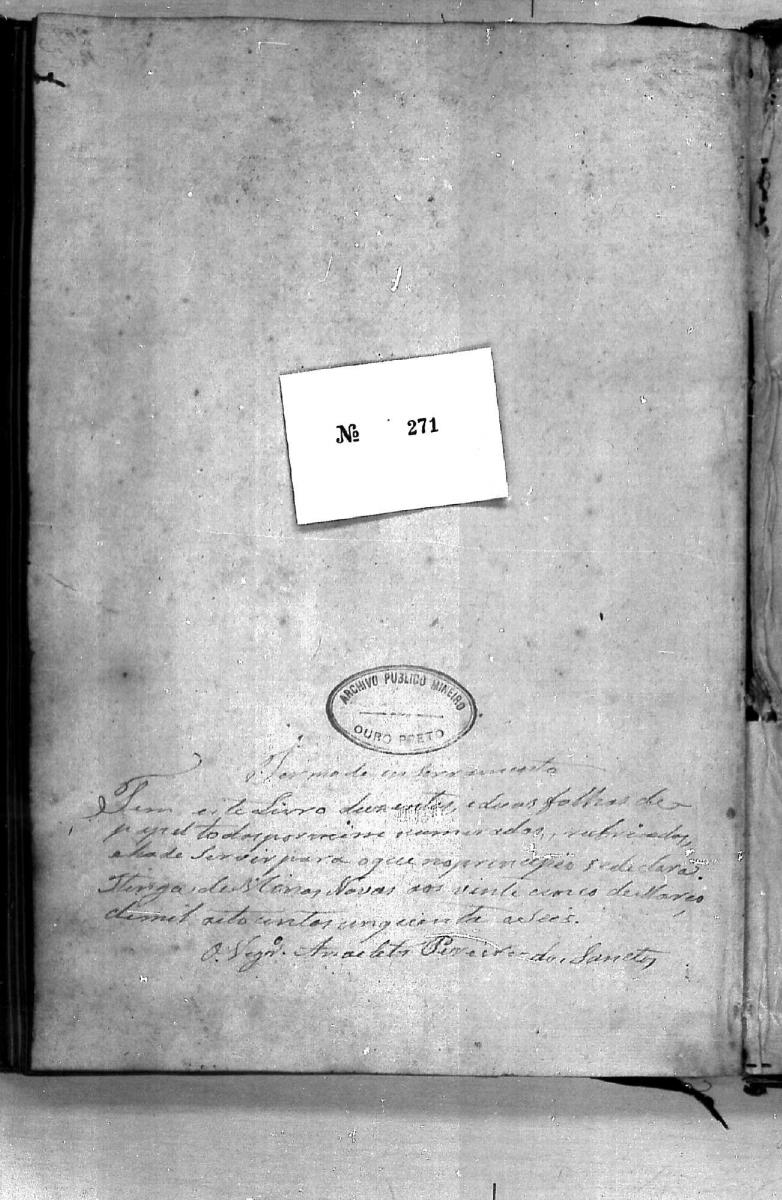 № 271
ARCHIVO PUBLICO MINEIRO
OURO PRETO
Termo de inserramento
Tem este Livro duzentos, e duas folhas de
papel todas por mim numerados, rubricados,
e hade Servir para o que no principio se declara.
Itinga de Minas Novas aos vinte cinco de Março
de mil oito centos cinquenta e Seis.
O. Vigr.º Anacleto Pereira dos Sanctos